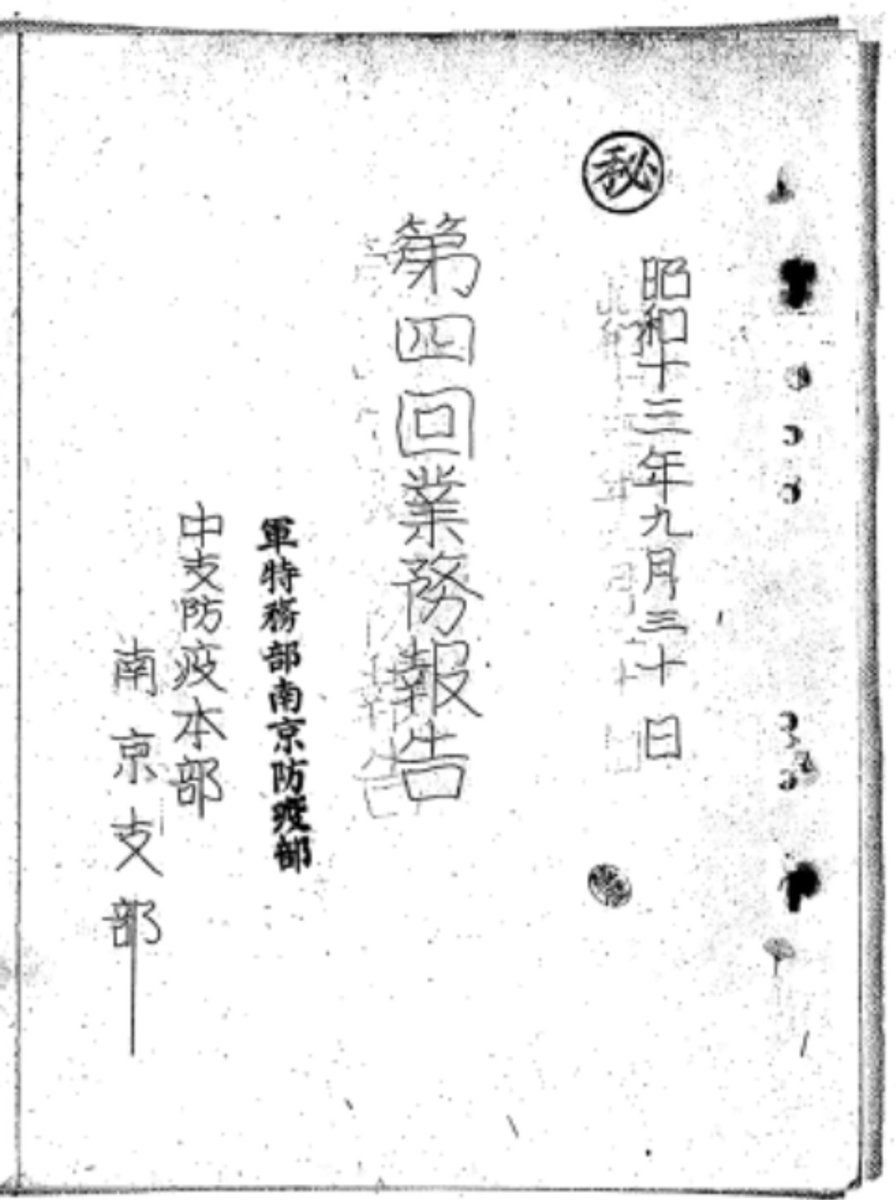 ㊙
昭和十三年九月三十日
第四回業務報告
軍特務部南京防疫部
中支防疫本部
南京支部